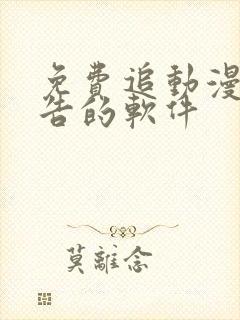 免費追動漫
告的軟件
莫離念